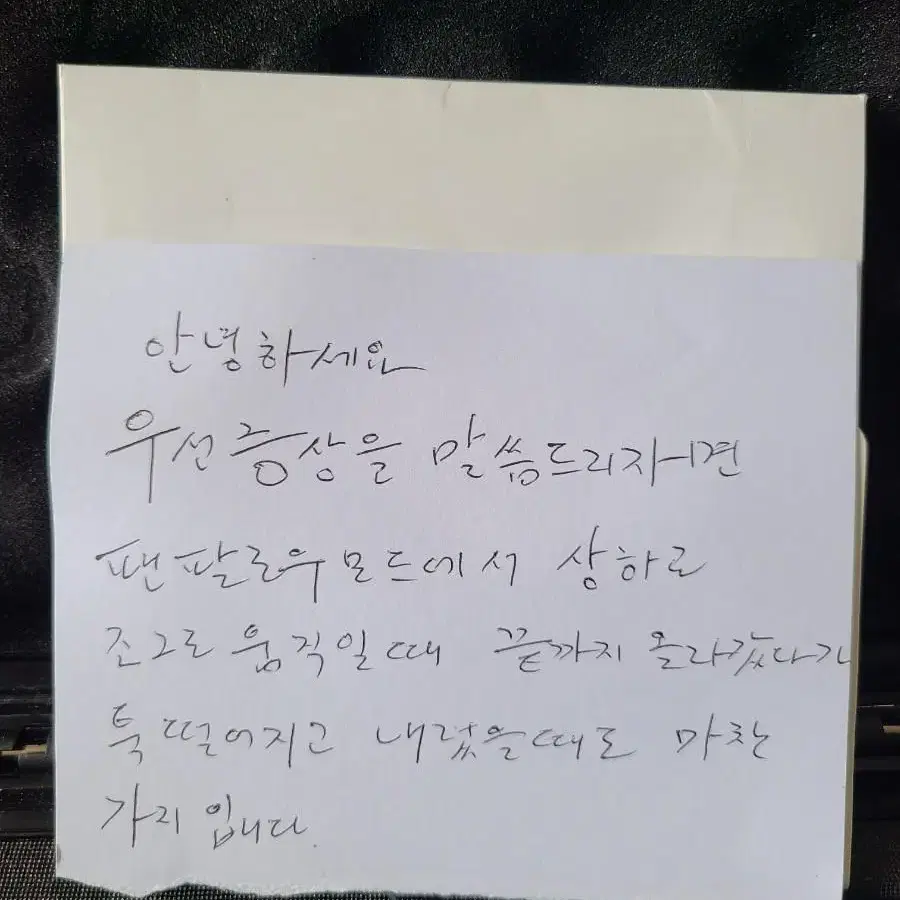 안녕하세요
우선증상을 말씀드리자면
팬팔로우모드에서 상하로
조그로 움직일때 끝까지 올라갔다가
툭 떨어지고 내렸을때도 마찬
가지입니다